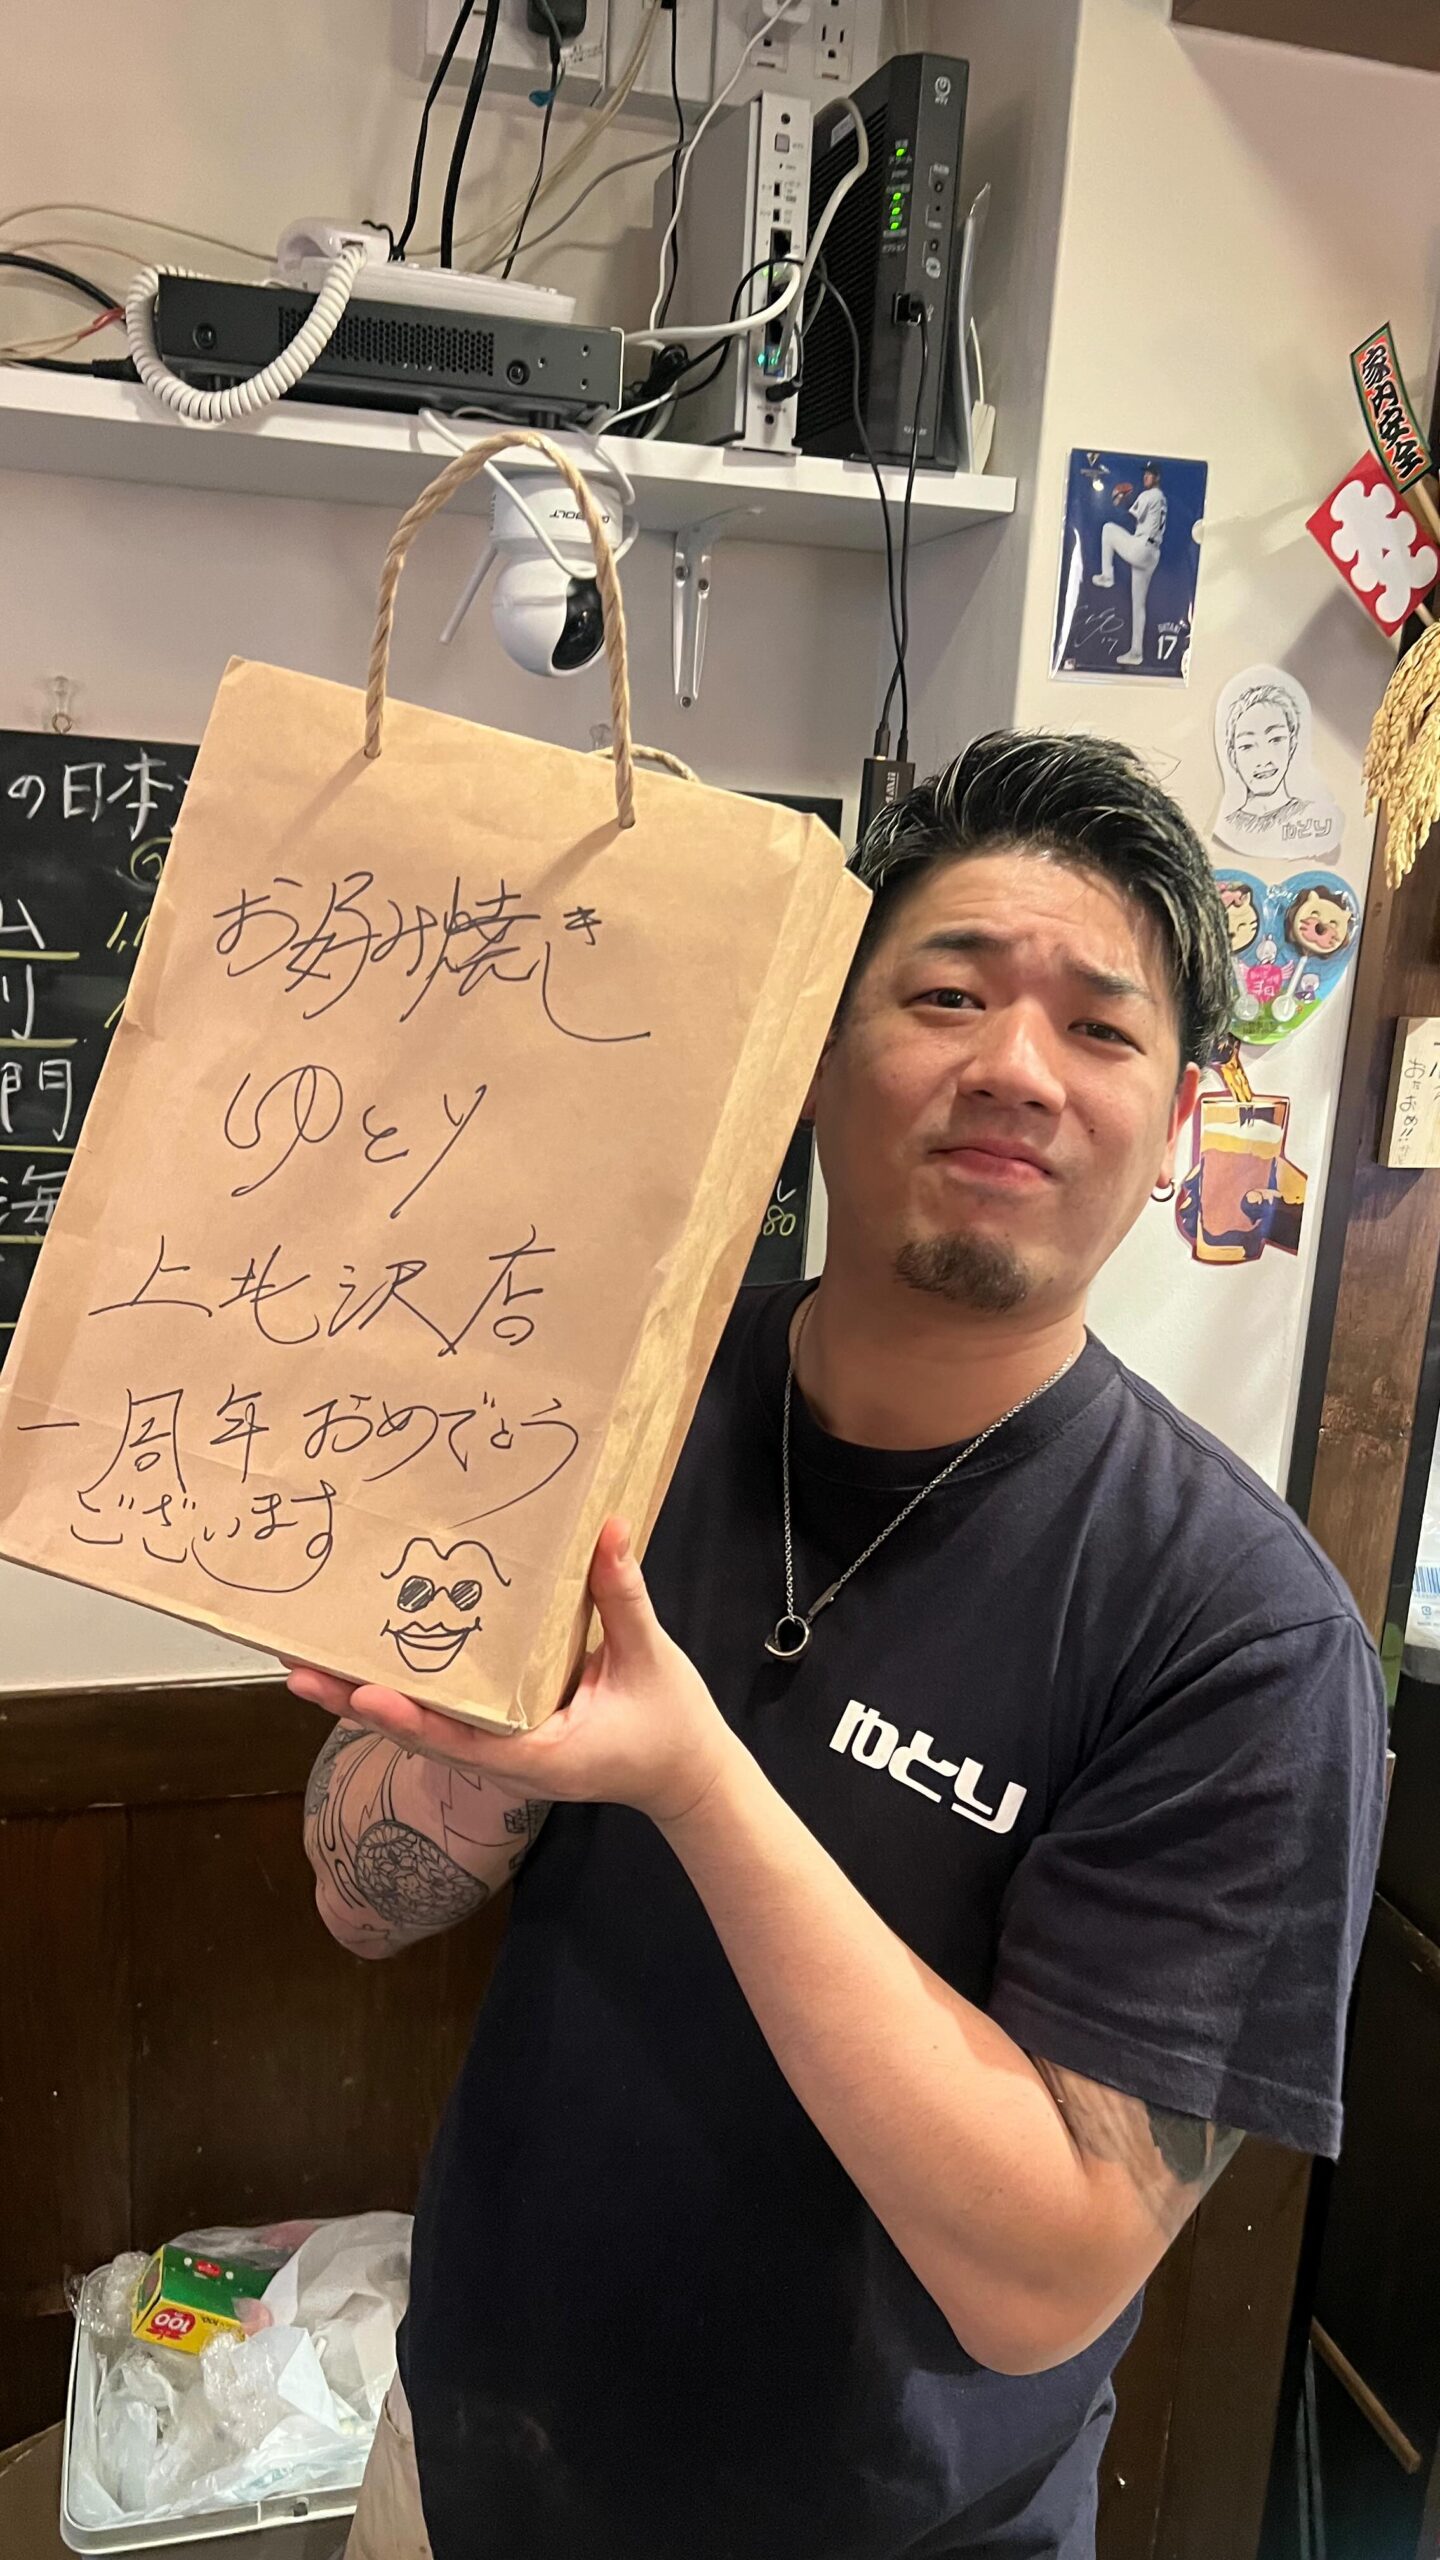 お好み焼き
ゆとり
上北沢店
一周年おめでとう
ございます
ゆとり
家内安全
笑
17
ゆとり
の日本
門
海
80
100